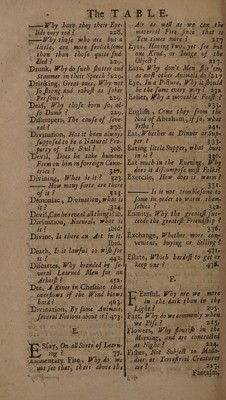 The TABLE.
— Why have they their Eye-
lids very red? 228.
— Why those who are but a
little, are more frolicksome
than than those quite fud-
led? 220.
Drink, Why do such stutter and
Stammer in their Speech? 229.
Drinking, Great ones, Why not
so strong and robust as sober
Persons? 229.
Deaf, Why those born so, al-
so Dumb?
Distempers, The cause of seve-
ral? 278.
Divination, Has it been always
supposed to be a Natural Pro-
perty of the Soul? 308.
Devil, Does he take humane
Form on him in foreign Coun-
tries? 317.
Divining, What is it? 323.
— How many sorts are there
of it? 323.
Demoniac, Divination, what is
it? 324.
Devil, Can he reveal all things? ib.
Divination, Natural, what is
it? ibid.
Divine, Is there an Art in it.
ibid.
Death, Is it lawful to wish for
it? 442.
Descartes, Why branded by so-
veral Learned Men for an
Atheist? 432.
Dee, A River in Cheshire that
overflows if the Wind blows
hard? 493.
Divination, By some Animals,
several Notions about it? 473.
E.
ESsay, On all Sorts of Learn-
ing? 77.
Elementary Fire, Why do we
not see that, thats above the
Air as well as we see the
material Fire, since that is
Ten times more?
Eyes, Having Two, yet see but
one Kind, or Image of the
Object? 217.
Ears, Why don't Men stir 'em,
as most other Animals do? 217
Eye, In a Picture, Why is fixed
in the same every way? 232
Eunuchs, Why a moveable Feast?
233.
English, Come they from the
Seed of Abraham, if so, what
Tribe? 241.
Eat, Whether at Dinner or Sup-
per? 313.
Eating little Supper, what doest
in it? 330.
Eat much in the Evening, Why
does it discompose most Folks?
Exercise, How does it warm?
331.
— Is it not troublesome to
some in order to warm them-
selves?
Enmity, Why the greatest suc-
ceeds the greatest Friendship?
336.
Exchange, Whether more con-
venient, buying or selling?
471.
Estate, Which hardest to get or
keep one? 478.
F.
FEarful, Why are we more
in the dark than in the
Light? 205.
Fart, Why do we commonly when
we Piss? 125.
Flowers, Why flourish in the
Morning, and are contracted
at Night? 224.
Fishes, Not Subject to Mala-
dies as Terrestrial Creatures
are? 227.
Fantasm,